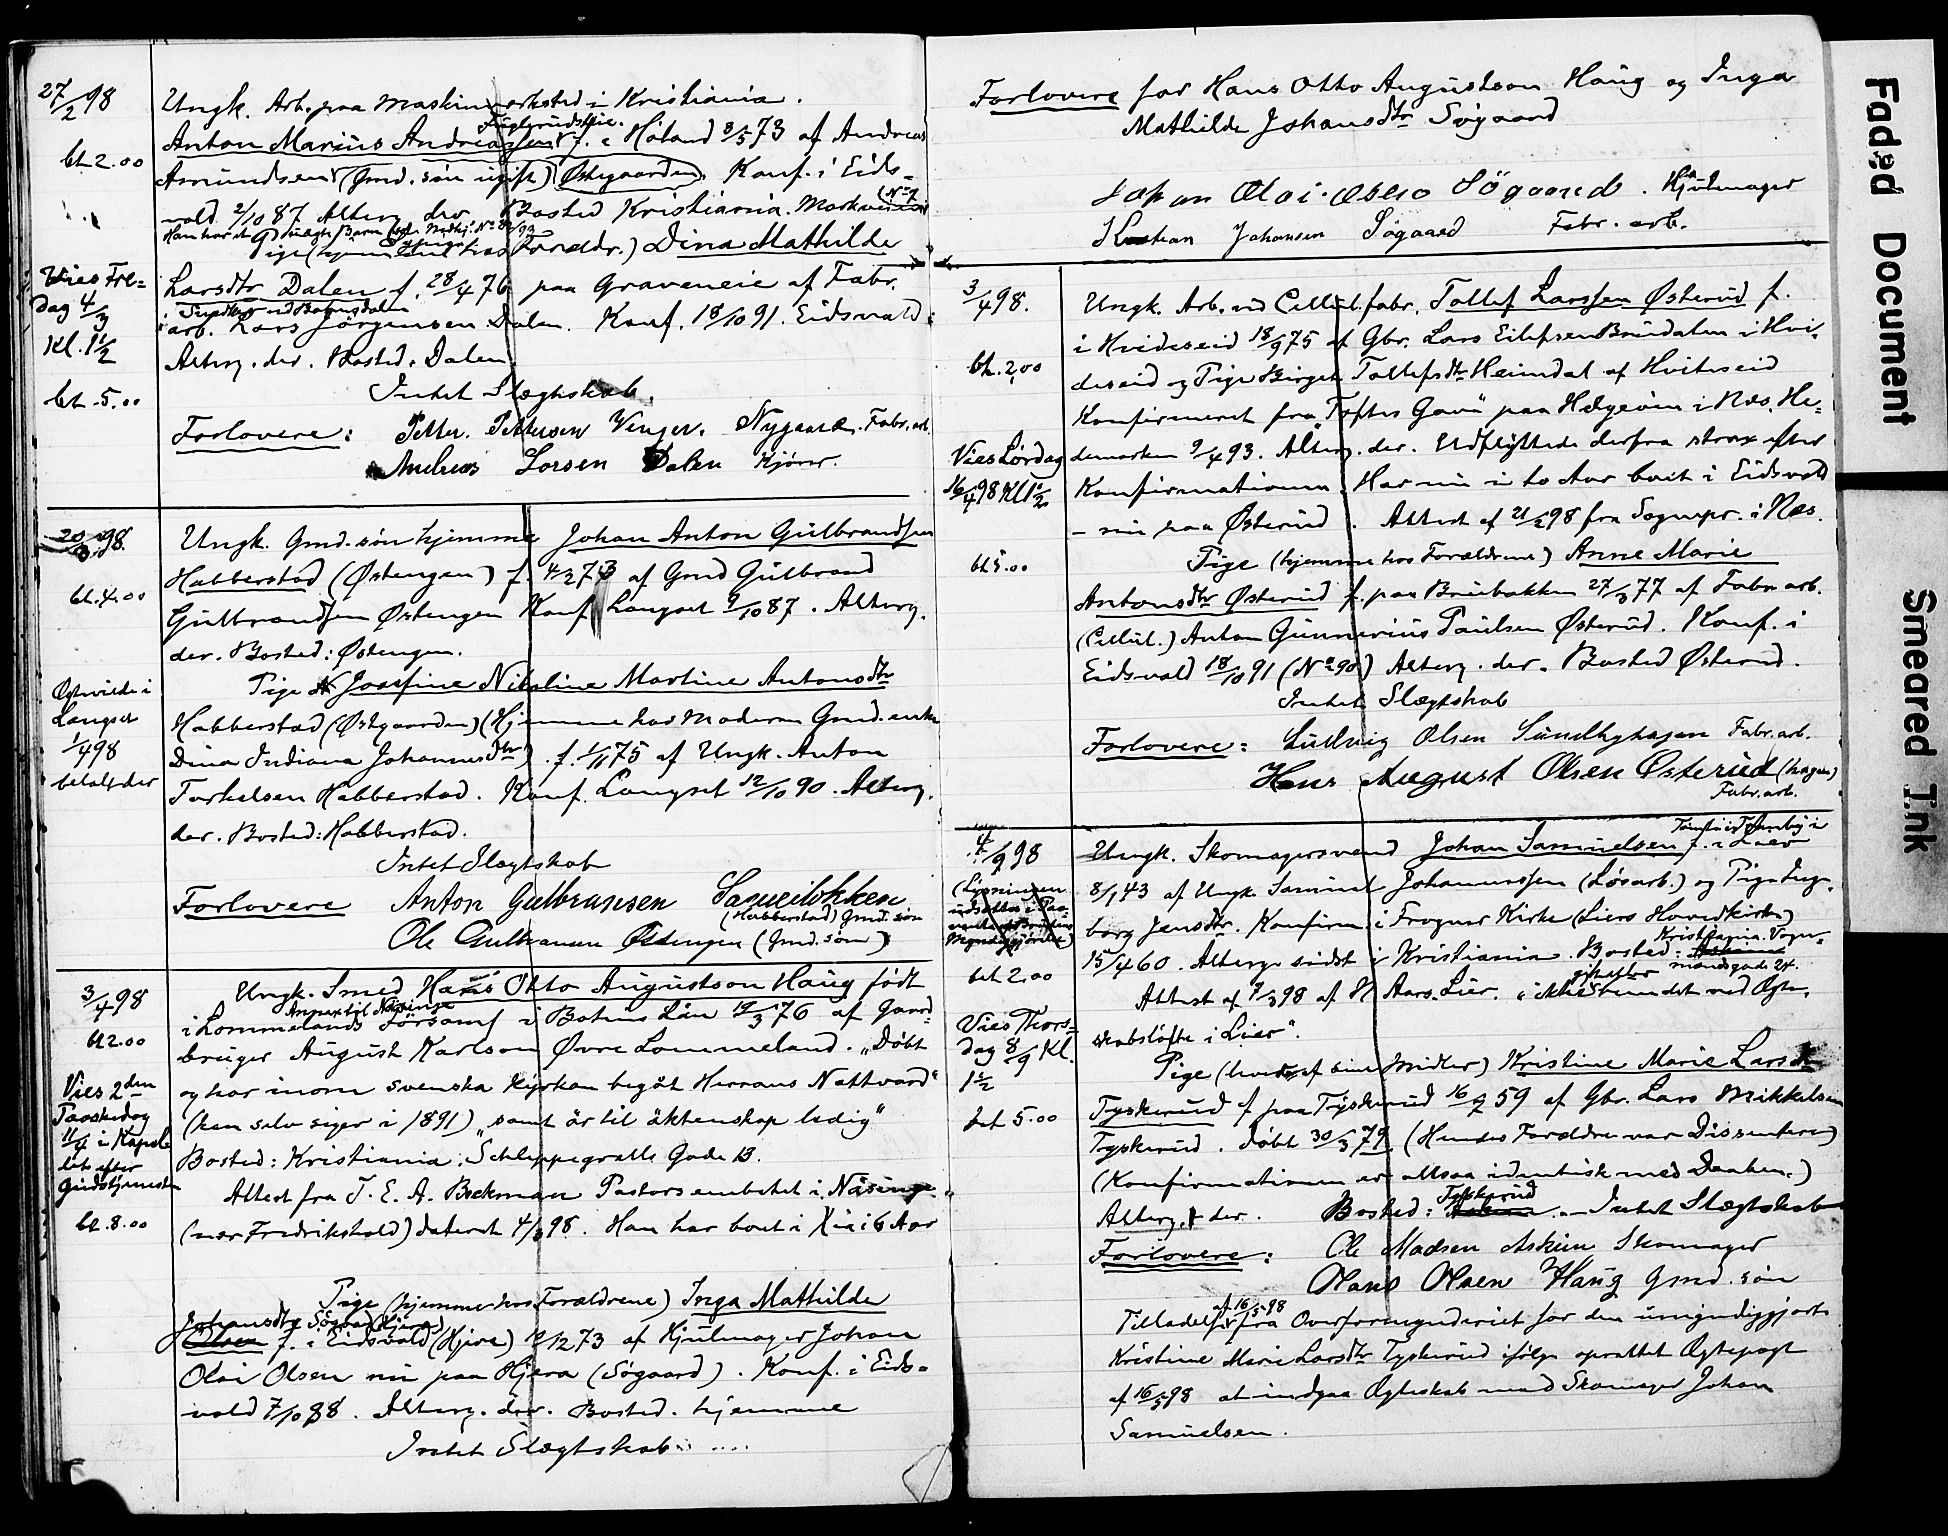 27/2 98
bt. 2.00
Ungk. Arb. paa Maskinverksted i Kristiania.
Fuglerudseie.
Anton Marius Andreassen f. i Høland 3/5 73 af Andreas
Amundsen (Gmd. søn ugift) Østgaarden. Konf. i Eids-
vold 2/10 87 Alterg. der Bosted Kristiania. Markveien
(No 7
Han har et
Pige (hjemme hos Forældr.) Dina Mathilde
Vies Fre-
dag 4/3
Kl. 1 1/2
bt. 5.00
Larsdtr Dalen f. 28/4 76 paa Graveneie af Fabr.
arb. Lars Jørgensen Dalen. Konf. 18/10 91. Eidsvold
Alterg. der. Bosted: Dalen.
Intet Slægtskab.
Forlovere: Petter. Pettersen Venger. Nygaard. Fabr. arb.
Andreas Larsen Dalen Kjører.
20/3 98.
bt. 4.00
Ungk. Gmd. søn hjemme Johan Anton Gulbrandsen
Habberstad (Østengen) f. 4/2 73 af Gmd Gulbrand
Gulbrandsen Østengen Konf. Langset 9/10 87. Alterg.
der. Bosted: Østengen.
Ægteviede i
Langset
1/4 98
betalt der
Pige Josefine Nikoline Martine Antonsdtr
Habberstad (Østgaarden) (Hjemme hos Moderen Gmd. enke
Dina Indiana Johannesdtr) f. 1/11 75 af Ungk. Anton
Torkelsen Habberstad. Konf. Langset 12/10 90. Alterg.
der. Bosted: Habberstad.
Intet Slægtskab
Forlovere Anton Gulbransen
(Habberstad) Gmd. søn
Ole Gulbransen Østengen (Gmd. søn)
3/4 98
bt 2.00
Ungk. Smed Hans Otto Augustson Haug født
Annex til Näsinge
i Lommelands Församl i Bohus Län 19/3 76 af Gaard-
bruger August Karlson Øvre Lommeland. „Døbt
og har inom svenska kyrkan begåt Herrans Nattvard"
(han selv siger i 1891) „samt är til äktenskap ledig"
Bosted: Kristiania, Schleppegrells Gade 13.
Vies 2den
Paaskedag
11/4 i Kapel-
let efter
Gudstjenesten
bt. 8.00
Attest fra T. E. A. Beckman Pastorsembetet i Näsinge
(nær Fredrikshald) dateret 4/3 98. Han har boet i Kria i 6 Aar
Pige (hjemme hos Forældrene) Inga Mathilde
Johansdtr Søgaard (Hjera)
Olsen f. i Eidsvold (Hjera) 10/12 73 af Hjulmager Johan
Olai Olsen nu paa Hjera (Søgaard). Konf. i Eids-
vold 7/10 88. Alterg. der. Bosted. hjemme
Intet Slægtskab
Forlovere for Hans Otto Augustson Haug og Inga
Mathilde Johansdtr Søgaard
Johan Olai Olsen Søgaard. Hjulmager
Kristian Johansen Søgaard Fabr. arb.
3/4 98.
bt. 2,00
Ungk. Arb. ved Cellul. fabr. Tollef Larssen Østerud f.
i Hvideseid 18/9 75 af Gbr. Lars Eilefsen Brudalen i Hvi-
deseid og Pige Birget Tollefsdtr Heimdal af Hviteseid
Konfirmeret fra Toftes Gave paa Helgeøen i Næs, He-
demarken 9/4 93. Alterg. der. Udflyttede derfra strax efter
Konfirmationen. Har nu i to Aar boet i Eidsvold
- nu paa Østerud. Attest af 21/2 98 fra Sognepr. i Næs.
Vies Lørdag
16/4 98 Kl 1 1/2
bt 5.00
Pige (hjemme hos Forældrene) Anne Marie
Antonsdtr Østerud f. paa Brubakken 27/3 77 af Fabr. arb.
(Cellul.) Anton Gunnerius Paulsen Østerud. Konf. i
Eidsvold 18/10 91 (No 90) Alterg. der. Bosted Østerud.
Intet Slægtskab
Forlovere: Ludvig Olsen Sundbyhagen Fabr. arb.
Hans August Olsen Østerud (hagen)
Fabr. arb.
4/9 98
bt 2.00
Ungk. Skomagersvend Johan Samuelsen f. i Lier
8/1 43 af Ungk Samuel Johannessen (Løsarb.) og Pige Inge-
borg Jensdtr. Konfirm. i Frogner Kirke (Liers Hovedkirke)
15/4 60. Alterg. sidst i Kristiania. Bosted: Kristiania. Vogn-
mandsgade 24.
Attest af 9/3 98 af H Aars. Lier. „ikke bundet ved Ægte-
skabsløfte i Lier".
Vies Thors-
dag 8/9 Kl.
1 1/2
bt 5.00
Pige (lever af sine Midler) Kristine Marie Larsdtr
Tyskerud f. paa Tyskerud 16/7 59 af Gbr. Lars Mikkelsen
Tyskerud. Døbt 30/3 79 (Hendes Forældre var Dissentere)
(Konfirmationen er altsaa identisk med Daaben.)
Alterg. der. Bosted: Tyskerud. - Intet Slægtskab
Forlovere: Ole Madsen Askim Skomager
Hans Olsen Haug Gmd. søn
Tilladelse af 16/5 98 fra Overformynderiet for den umyndiggjorte
Kristine Marie Larsdtr Tyskerud ifølge oprettet Ægtepagt
af 16/5 98 at indgaa Ægteskab med Skomager Johan
Samuelsen.
Faded Document
Smeared Ink